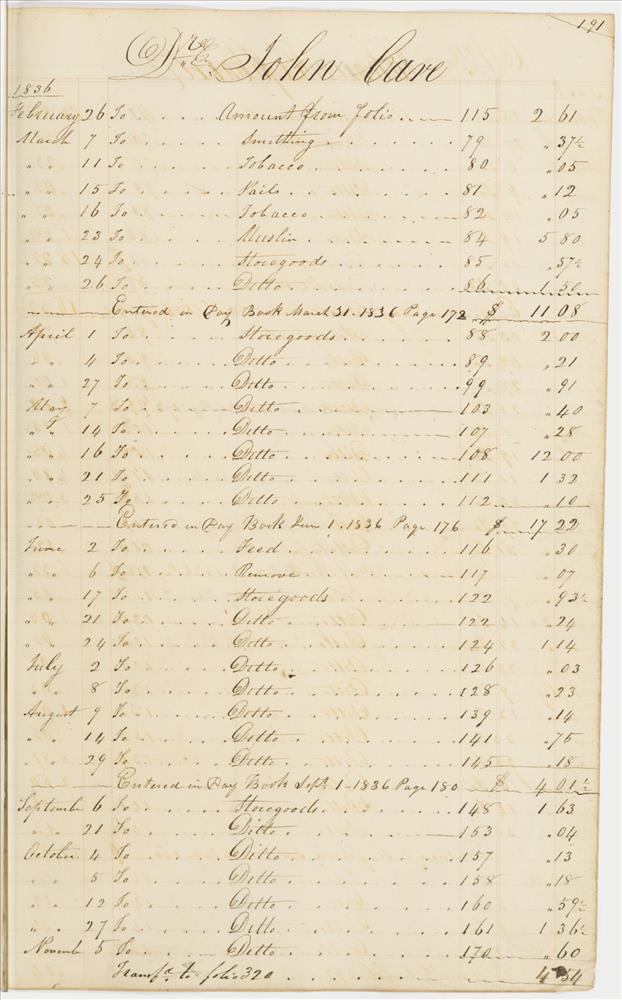 191
Dr. John Care
1836
February 26 To . . . . Amount from folio . . 115 2 61
March 7 To . . . . Smithing . . . . 79 " 37½
" " 11 To . . . . Tobacco . . . . 80 " 05
" " 15 To . . . . Nails . . . . 81 " 12
" " 16 To . . . . Tobacco . . . . 82 " 05
" " 23 To . . . . Muslin . . . . 84 5 80
" " 24 To . . . . Storegoods . . . . 85 " 57½
" " 26 To . . . . Ditto . . . . 86 1 50
Entered in Day Book March 31. 1836 Page 172 $ 11 08
April 1 To . . . . Storegoods . . . . 88 2 00
" " 4 To . . . . Ditto . . . . 89 " 21
" " 27 To . . . . Ditto . . . . 99 " 91
May 7 To . . . . Ditto . . . . 103 " 40
" " 14 To . . . . Ditto . . . . 107 " 28
" " 16 To . . . . Ditto . . . . 108 12 00
" " 21 To . . . . Ditto . . . . 111 1 32
" " 25 To . . . . Ditto . . . . 112 " 10
Entered in Day Book June 1. 1836 Page 176 $ 17 22
June 2 To . . . . Feed . . . . 116 " 30
" " 6 To . . . . 117 " 07
" " 17 To . . . . Storegoods . . . . 122 " 93½
" " 21 To . . . . Ditto . . . . 122 " 24
" " 24 To . . . . Ditto . . . . 124 1 14
July 2 To . . . . Ditto . . . . 126 " 03
" " 8 To . . . . Ditto . . . . 128 " 23
August 9 To . . . . Ditto . . . . 139 " 14
" " 14 To . . . . Ditto . . . . 141 " 75
" " 29 To . . . . Ditto . . . . 145 " 18
Entered in Day Book Sept. 1 - 1836 Page 180 $ 4 01½
Septembr 6 To . . . . Storegoods . . . . 148 1 63
" " 21 To . . . . Ditto . . . . 153 " 04
October 4 To . . . . Ditto . . . . 157 " 13
" " 5 To . . . . Ditto . . . . 158 " 18
" " 12 To . . . . Ditto . . . . 160 " 59½
" " 27 To . . . . Ditto . . . . 161 1 36½
Novemb 5 To . . . . Ditto . . . . 170 " 60
Transfd. to folio 320 . . . . 4 54